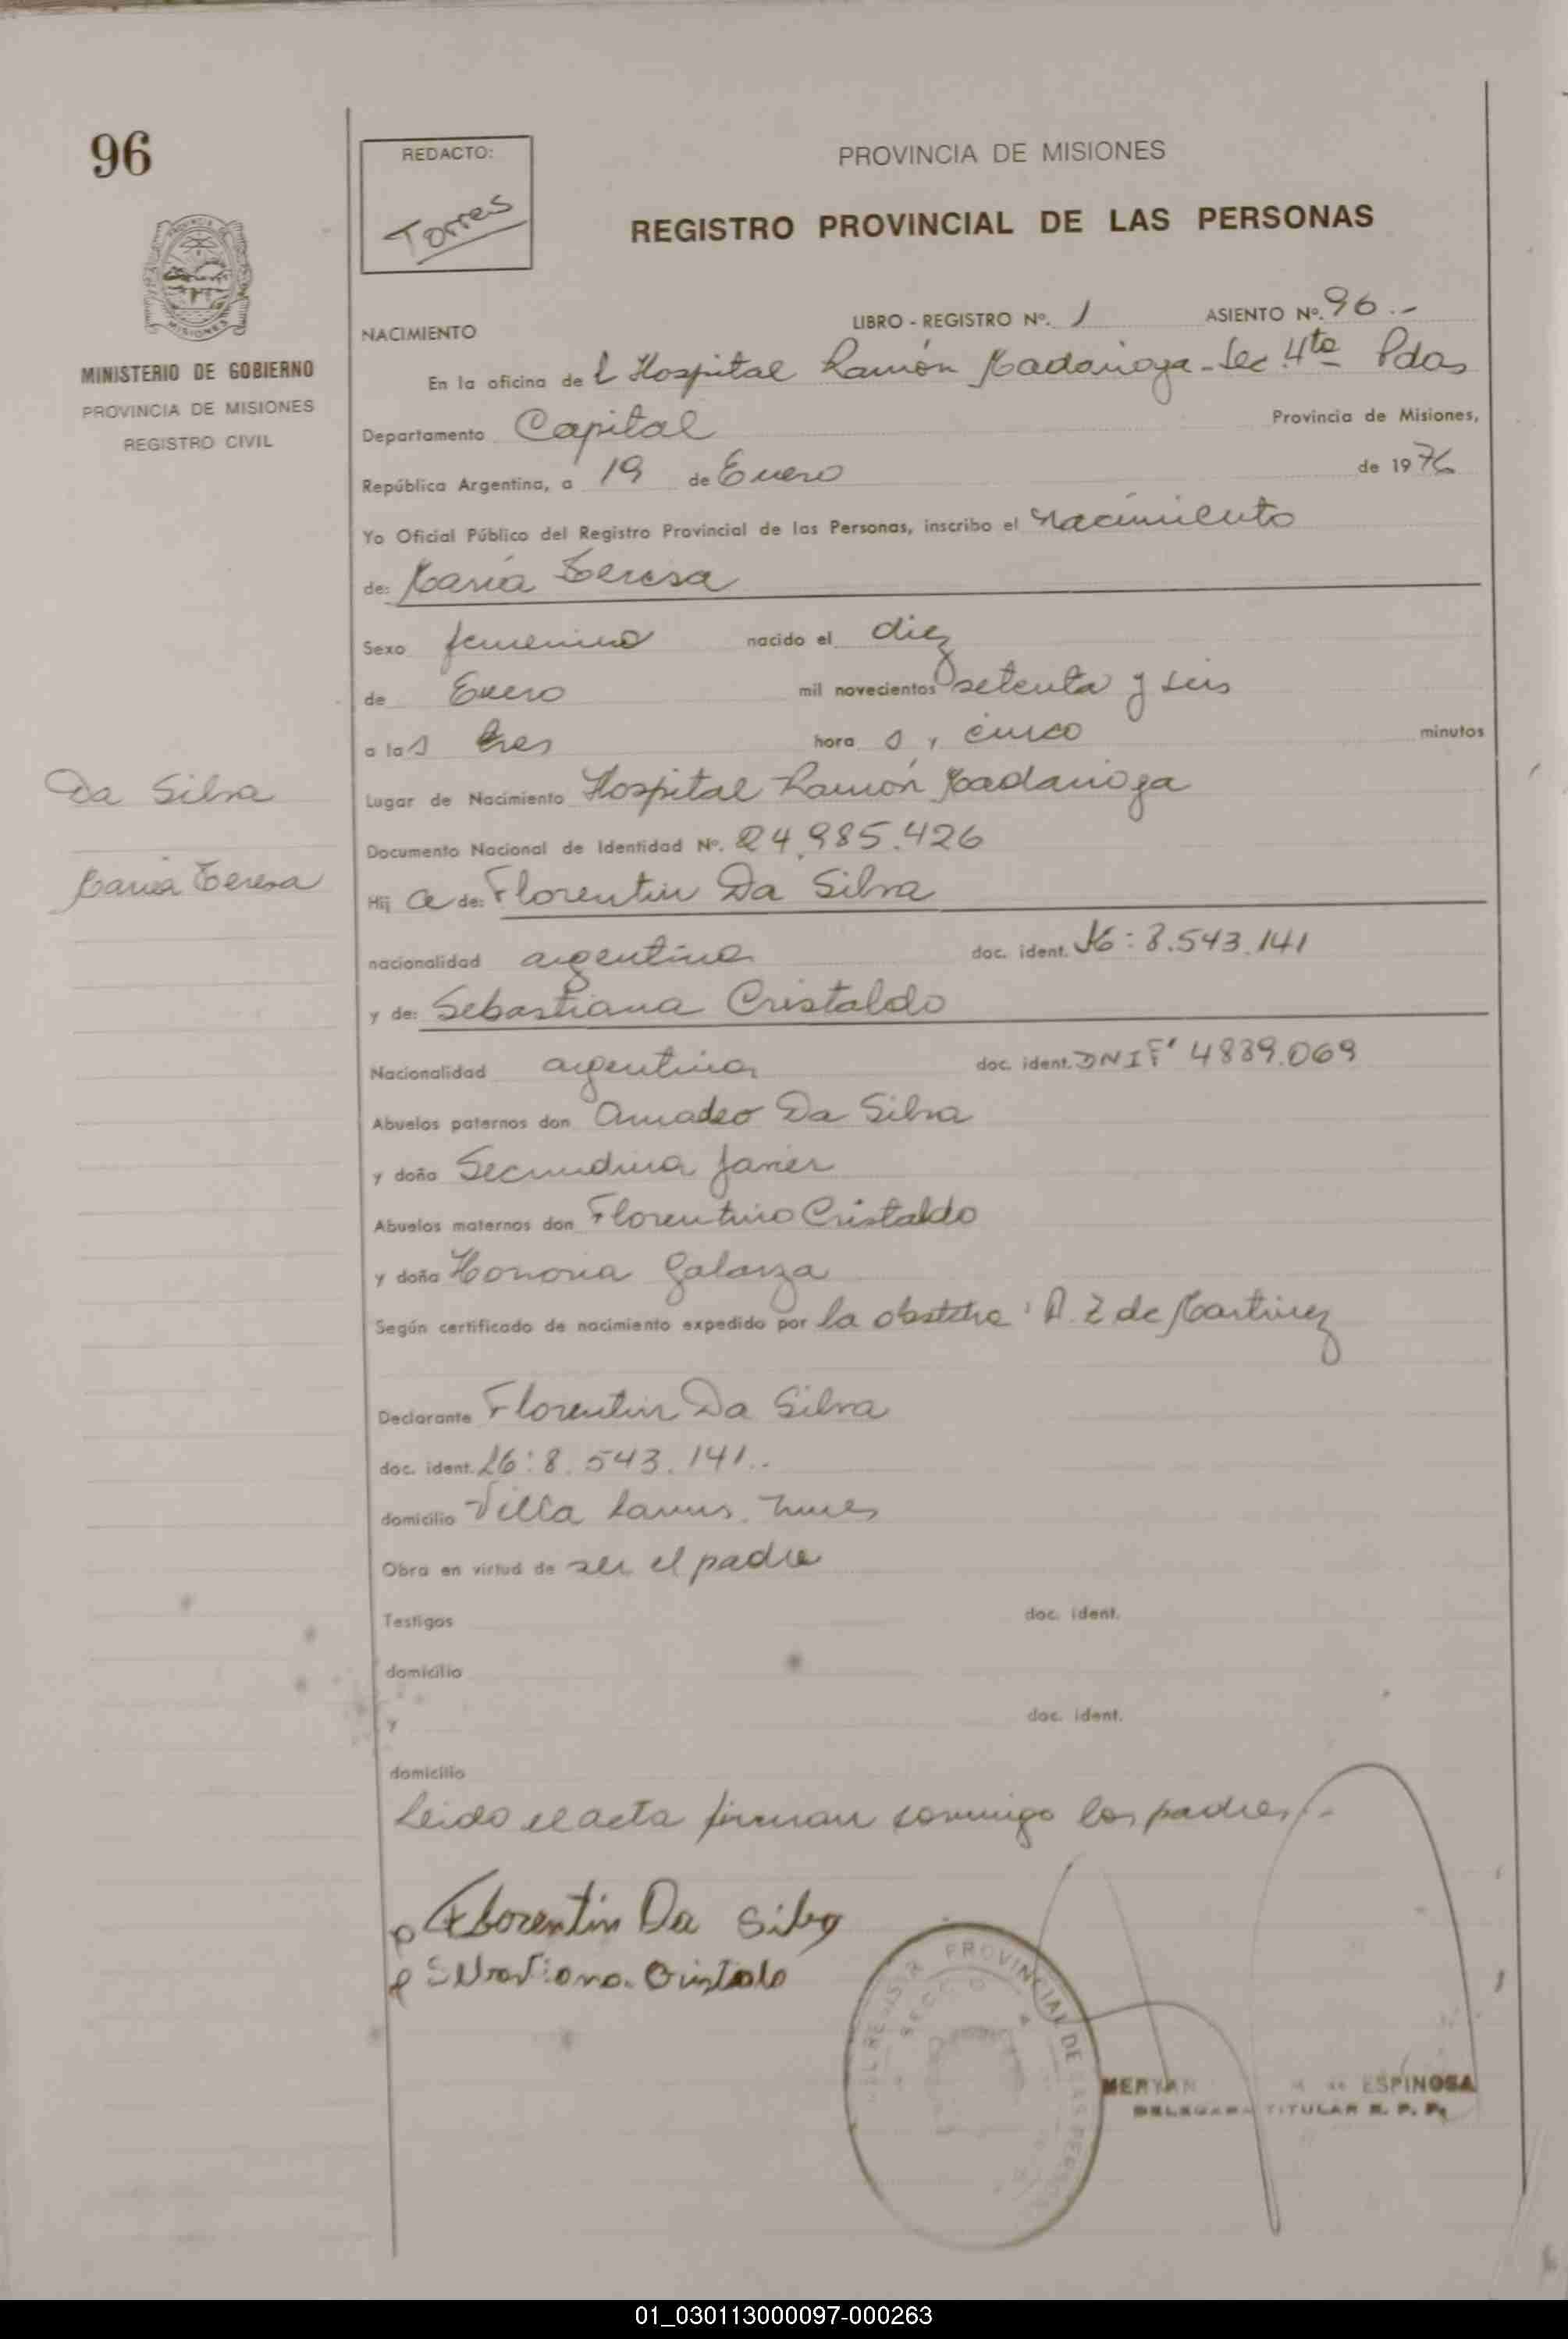 96
REDACTO:
Torres
PROVINCIA DE MISIONES
REGISTRO PROVINCIAL DE LAS PERSONAS
MINISTERIO DE GOBIERNO
PROVINCIA DE MISIONES
REGISTRO CIVIL
NACIMIENTO LIBRO - REGISTRO Nº. 1 ASIENTO Nº. 96.-
En la oficina del Hospital Ramón Madariaga - Sec. 4ta Pdas
Departamento Capital Provincia de Misiones,
República Argentina, a 19 de Enero de 1976
Yo Oficial Público del Registro Provincial de las Personas, inscribo el nacimiento
de: María Teresa
Sexo femenino nacido el diez
de Enero mil novecientos setenta y seis
a las tres horas y cinco minutos
Lugar de Nacimiento Hospital Ramón Madariaga
Documento Nacional de Identidad Nº. 24.985.426
Da Silva
María Teresa
Hija de: Florentin Da Silva
nacionalidad argentina doc. ident. 8.543.141
y de: Sebastiana Cristaldo
Nacionalidad argentina doc. ident. DNI F 4839.069
Abuelos paternos don Amadeo Da Silva
y doña Secundina Javier
Abuelos maternos don Florentino Cristaldo
y doña Honoria Galarza
Según certificado de nacimiento expedido por la obstetra: A. Z de Martinez
Declarante Florentin Da Silva
doc. ident. 8.543.141..
domicilio Villa Lanus
Obra en virtud de ser el padre
Testigos doc. ident.
domicilio
y doc. ident.
domicilio
Leido el acta firman conmigo los padres.-
Florentin Da Silva
Sebastiana Cristaldo
REGISTRO PROVINCIAL DE LAS PERSONAS
MERYAN ESPINOSA
DELEGADA TITULAR R. P. P.
01_030113000097-000263